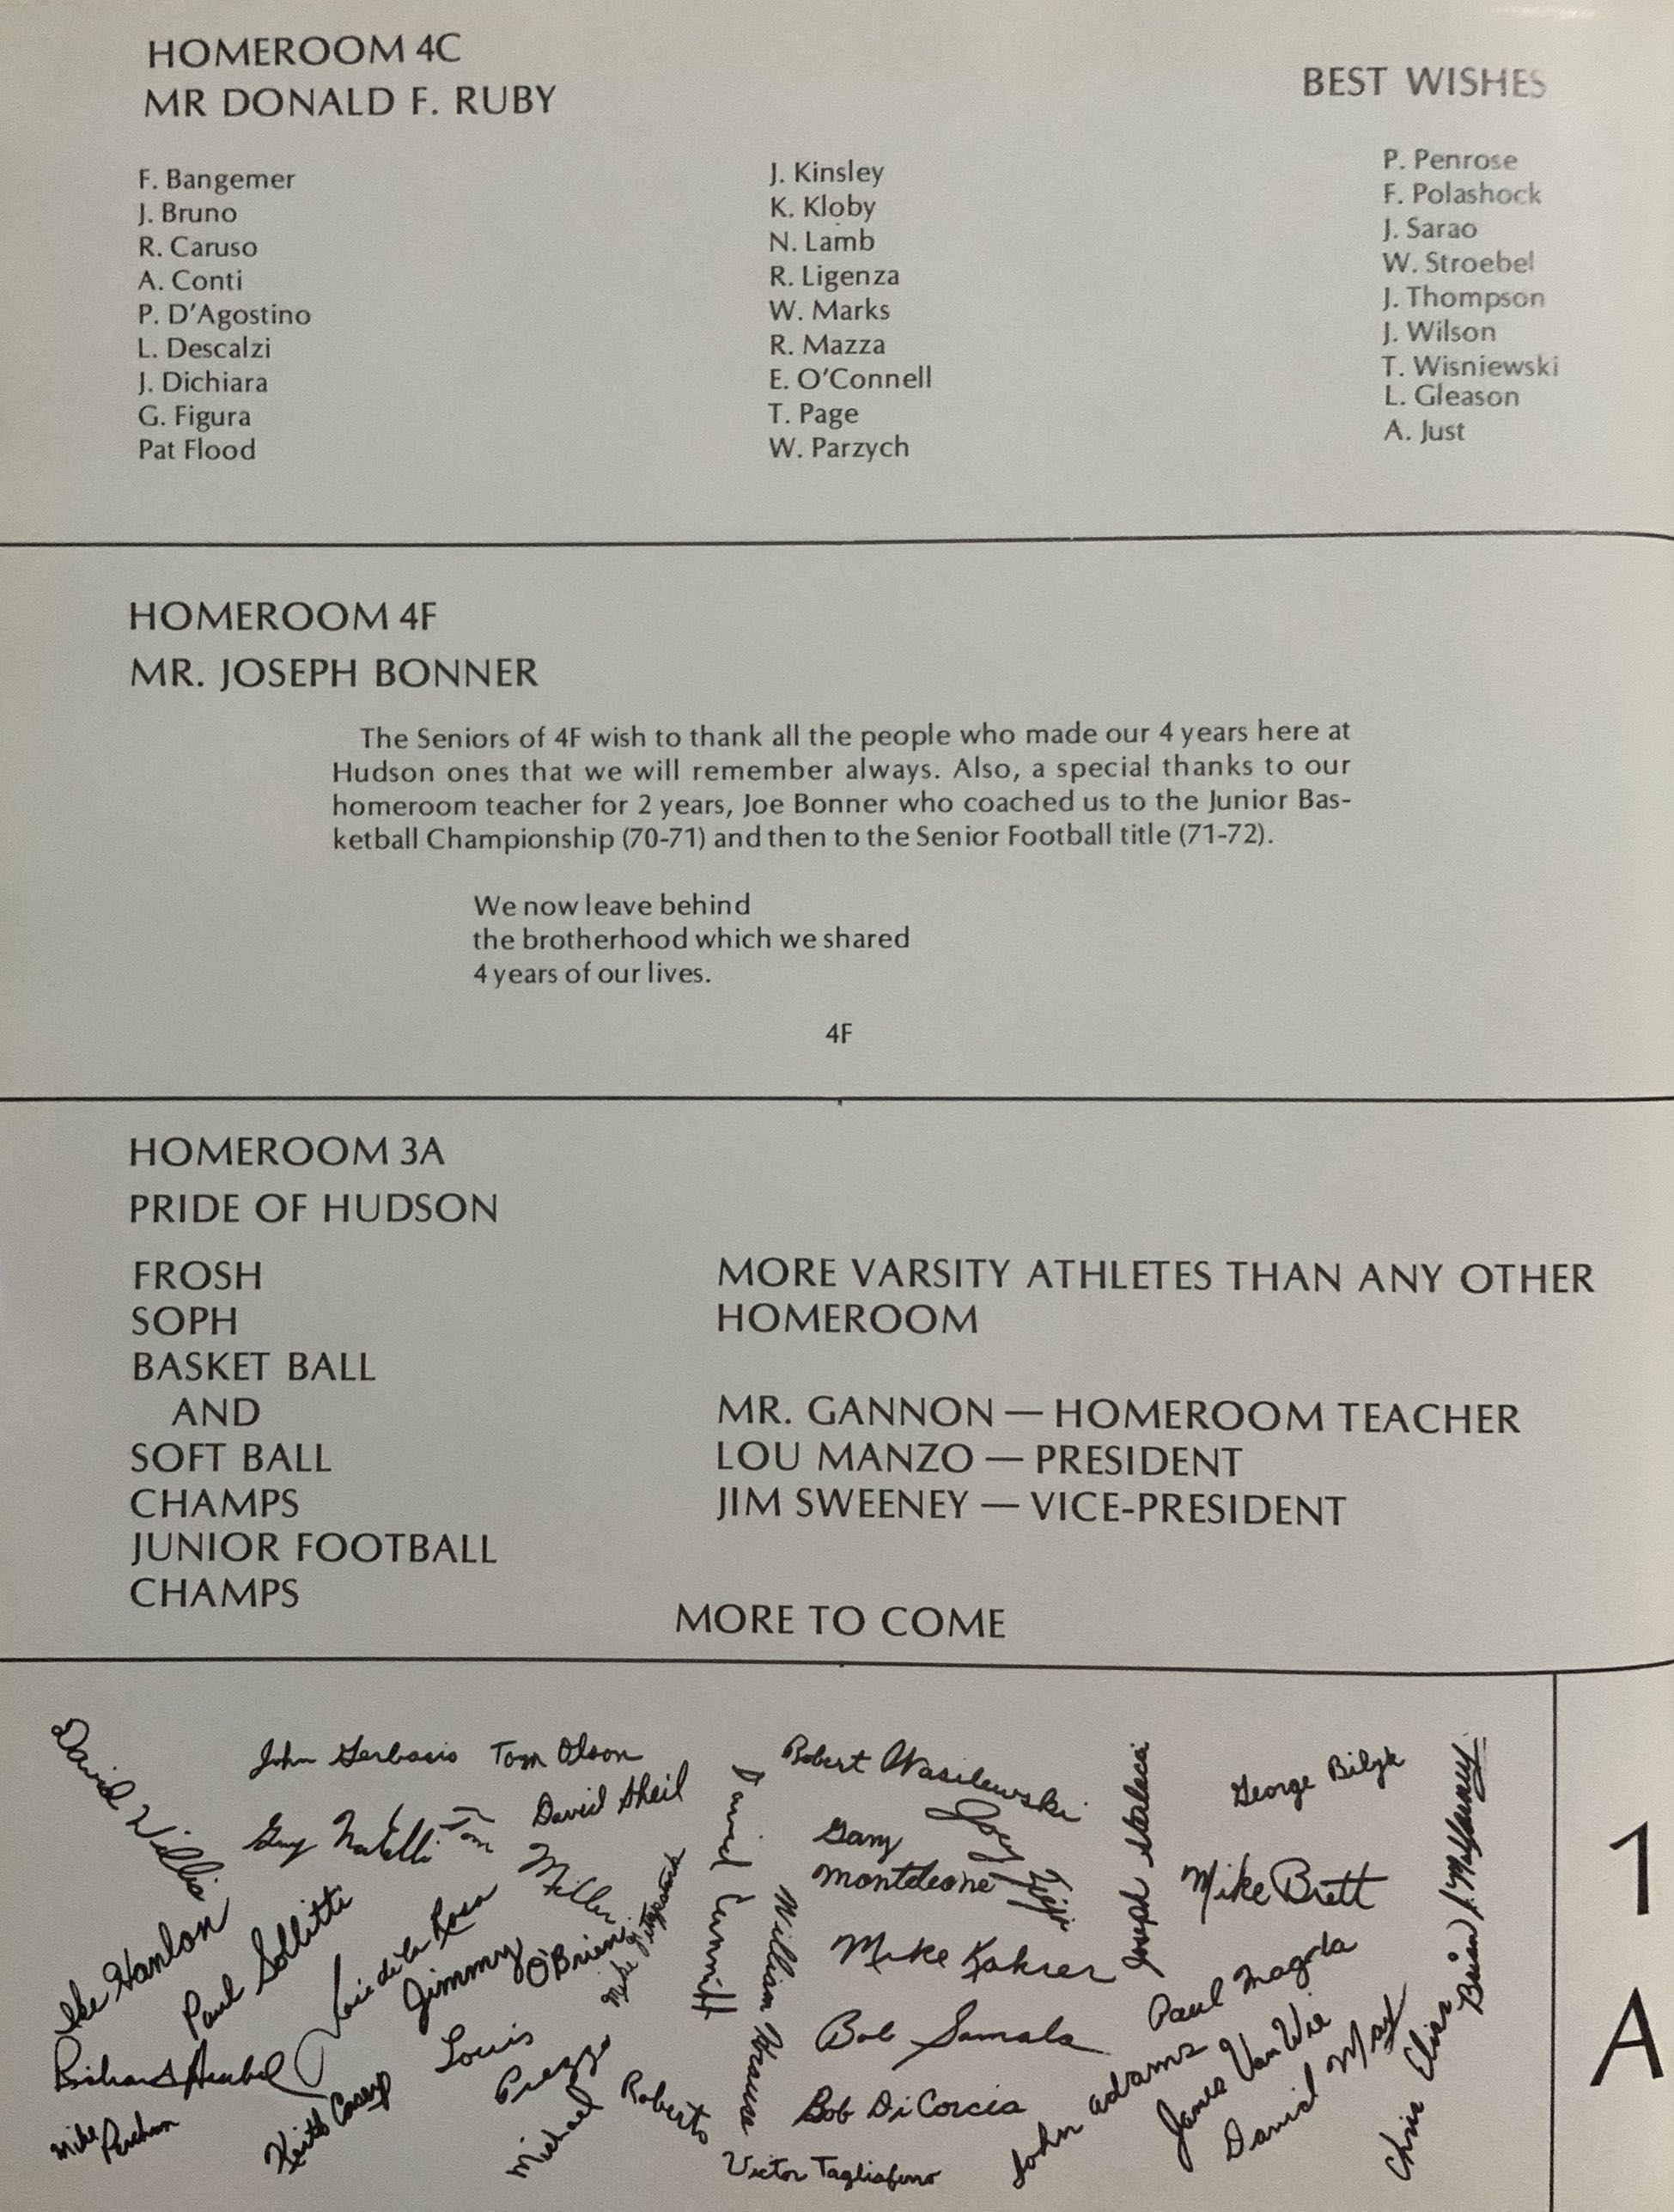 HOMEROOM 4C
MR DONALD F. RUBY
BEST WISHES
F. Bangemer
J. Bruno
R. Caruso
A. Conti
P. D'Agostino
L. Descalzi
J. Dichiara
G. Figura
Pat Flood
J. Kinsley
K. Kloby
N. Lamb
R. Ligenza
W. Marks
R. Mazza
E. O'Connell
T. Page
W. Parzych
P. Penrose
F. Polashock
J. Sarao
W. Stroebel
J. Thompson
J. Wilson
T. Wisniewski
L. Gleason
A. Just
HOMEROOM 4F
MR. JOSEPH BONNER
The Seniors of 4F wish to thank all the people who made our 4 years here at
Hudson ones that we will remember always. Also, a special thanks to our
homeroom teacher for 2 years, Joe Bonner who coached us to the Junior Bas-
ketball Championship (70-71) and then to the Senior Football title (71-72).
We now leave behind
the brotherhood which we shared
4 years of our lives.
4F
HOMEROOM 3A
PRIDE OF HUDSON
FROSH
SOPH
BASKET BALL
AND
SOFT BALL
CHAMPS
JUNIOR FOOTBALL
CHAMPS
MORE VARSITY ATHLETES THAN ANY OTHER
HOMEROOM
MR. GANNON — HOMEROOM TEACHER
LOU MANZO — PRESIDENT
JIM SWEENEY — VICE-PRESIDENT
MORE TO COME
David Willis
John Gerbasio
Tom Olson
Guy Natelli
Tom
Miller
David Sheil
Robert Wasilewski
Gary
Monteleone
Joey
Joseph
George Bilyk
Mike Brett
Brian
Ike Hanlon
Paul Sollitto
Jimmy
O'Brien
Mike Fitzgerald
Daniel
William
Mike Kahrer
Paul Magda
Bob Samala
Richard
Louis
Prezzo
Mike
Keith Casey
Michael
Roberto
Bob DiCorcia
Victor Tagliaferro
John Adams
James VanWie
David May
Chris Elias
1
A